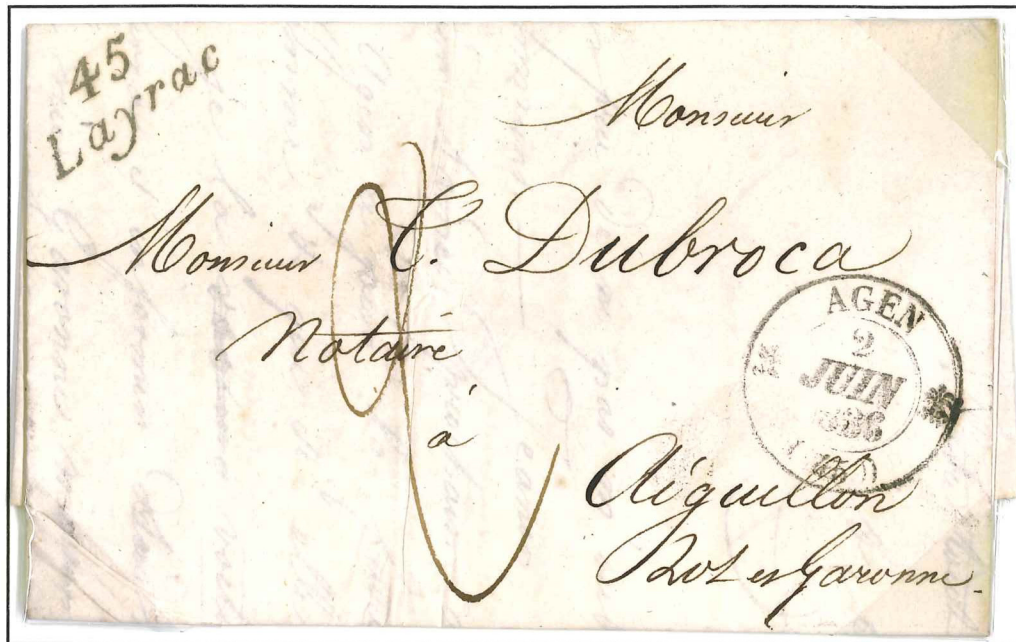 45
Layrac
Monsieur
Monsieur C. Dubroca
Notaire
à
Aiguillon
Lot et Garonne.
AGEN
2
JUIN